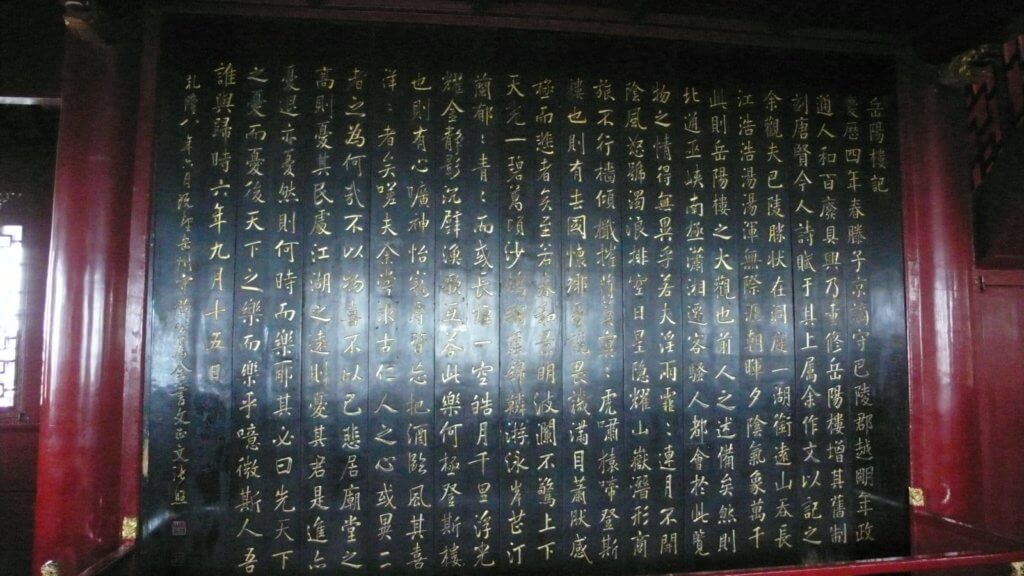 岳陽樓記
慶曆四年春滕子京謫守巴陵郡越明年政
通人和百廢具興乃重修岳陽樓增其舊制
刻唐賢今人詩賦于其上屬余作文以記之
余觀夫巴陵勝狀在洞庭一湖銜遠山吞長
江浩浩湯湯渾無際涯朝暉夕陰氣象萬千
此則岳陽樓之大觀也前人之述備矣然則
北通巫峽南極瀟湘遷客騷人都會於此覽
物之情得無異乎若夫淫雨霏:連月不開
陰風怒號濁浪排空日星隱耀山嶽潛形商
旅不行檣傾楫摧薄暮冥:虎嘯猿啼登斯
樓也則有去國懷鄉憂讒畏譏滿目蕭然感
極而悲者矣至若春和景明波瀾不驚上下
天光一碧萬頃沙鷗翔集錦鱗游泳岸芷汀
蘭郁:青:而或長煙一空皓月千里浮光
耀金靜影沉璧漁歌互答此樂何極登斯樓
也則有心曠神怡寵辱皆忘把酒臨風其喜
洋:者矣嗟夫余嘗求古仁人之心或異二
者之為何哉不以物喜不以己悲居廟堂之
高則憂其民處江湖之遠則憂其君是進亦
憂退亦憂然則何時而樂耶其必曰先天下
之憂而憂後天下之樂而樂乎噫微斯人吾
誰與歸時六年九月十五日
乾隆八年六月 書文正文張照